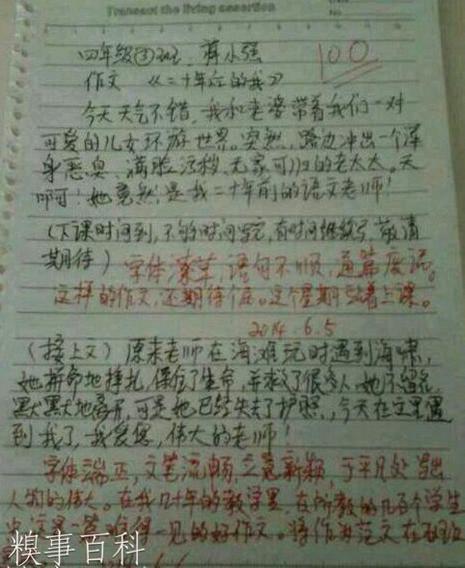 Transcend the living assertion
No
100
四年级③班 蒋小强
作文 《二十年后的我》
今天天气不错,我和老婆带着我们一对
可爱的儿女环游世界。突然,路边冲出一个浑
身恶臭、满脸污秽、无家可归的老太太。天
啊!她竟然是我二十年前的语文老师!
(下课时间到,不够时间写完,有时间继续写,敬请
期待) 字体潦草,语句不顺,通篇废话。
这样的作文,还期待个屁。这个星期站着上课。
2014.6.5
(接上文) 原来老师在海滩玩时遇到海啸,
她拼命地挣扎,保住了生命,并救了很多人,她不留名
默默地离开,可是她已经失去了护照,今天在这里遇
到我了,我爱您,伟大的老师!
字体端正,文笔流畅,立意新颖,于平凡处显出
人物的伟大。在我几十年的教学里,在所教的几百个学生
中,这是一篇难得一见的好作文。将作为范文在班
糗事百科